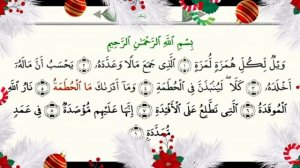 بِسْمِ اللَّهِ الرَّحْمَٰنِ الرَّحِيمِ
وَيْلٌ لِّكُلِّ هُمَزَةٍ لُّمَزَةٍ ۝ الَّذِي جَمَعَ مَالًا وَعَدَّدَهُ ۝ يَحْسَبُ أَنَّ مَالَهُ
أَخْلَدَهُ ۝ كَلَّا ۖ لَيُنبَذَنَّ فِي الْحُطَمَةِ ۝ وَمَا أَدْرَاكَ مَا الْحُطَمَةُ ۝ نَارُ اللَّهِ
الْمُوقَدَةُ ۝ الَّتِي تَطَّلِعُ عَلَى الْأَفْئِدَةِ ۝ إِنَّهَا عَلَيْهِم مُّؤْصَدَةٌ ۝ فِي عَمَدٍ
مُّمَدَّدَةٍ ۝